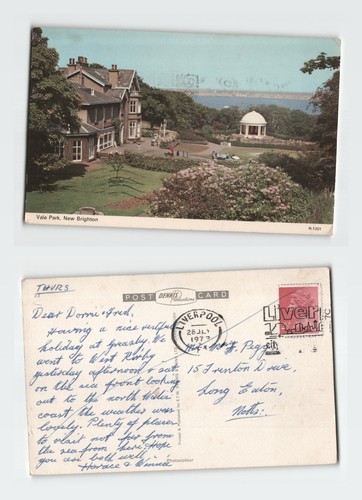 Vale Park, New Brighton
N.1201
THURS
POST DENNIS Productions CARD
Dear Dorrie & Fred,
Having a nice restful
holiday at Greasby. We
went to West Kirby
yesterday afternoon & sat
on the sea front looking
out to the north Wales
coast the weather was
lovely. Plenty of places
to visit not far from
the sea from here. Hope
you are both well.
Horace & Winnie
LIVERPOOL
26 JLY
1979
Liver
Mr & Mrs F. Pegg
15
Drive,
Long Eaton,
Notts.